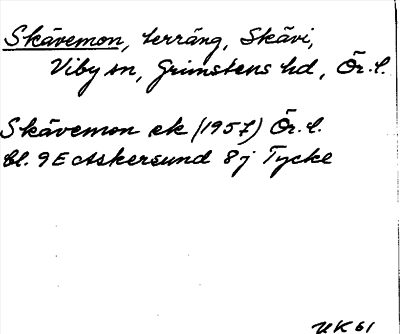 Skävemon, terräng, Skävi,
Viby sn, Grimstens hd, Ör. l.
Skävemon ek (1957) Ör. l.
bl. 9E Askersund 8j Tycke
UK 61